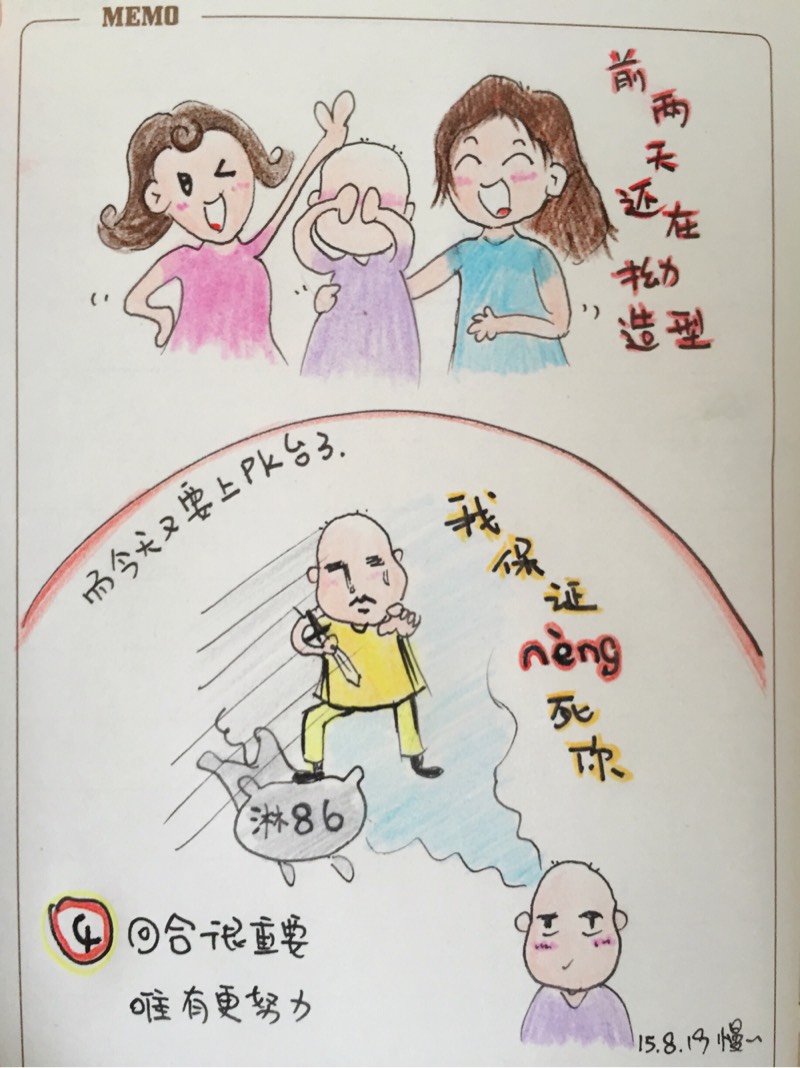 MEMO
前两天还在拗造型
而今天又要上PK台了.
我保证nèng死你
淋86
4回合很重要
唯有更努力
15.8.19 慢~